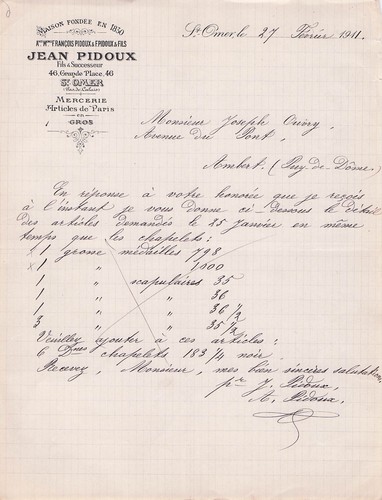 MAISON FONDÉE EN 1850
Ane Mson FRANÇOIS PIDOUX & F. PIDOUX & FILS
JEAN PIDOUX
Fils & Successeur
46, Grande Place, 46
ST OMER
(Pas de Calais)
MERCERIE
Articles de Paris
EN
GROS
St Omer, le 27 Février 1911.
Monsieur Joseph Ouvry,
Avenue du Pont,
Ambert. (Puy-de-Dôme)
En réponse à votre honorée que je reçois
à l'instant je vous donne ci-dessous le détail
des articles demandés le 25 janvier en même
temps que les chapelets :
x 1 grosse médailles 798
x 1 " 1000
1 " scapulaires 35
1 " " 36
1 " " 36 1/2
3 " " 35 1/2
Veuillez ajouter à ces articles :
6 Dnes chapelets 183 1/4 noir.
Recevez, Monsieur, mes bien sincères salutations.
pr J. Pidoux,
A. Pidoux.